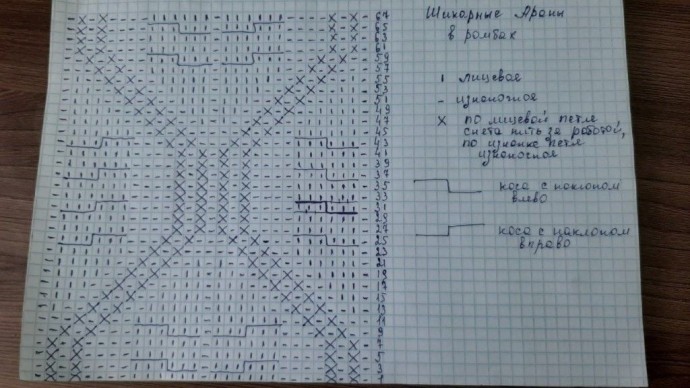 Шикарные Араны
в ромбах
| лицевая
- изнаночная
X по лицевой петле
снята нить за работой,
по изнанке петля
изнаночная
коса с наклоном
влево
коса с наклоном
вправо
67
65
63
61
59
57
55
53
51
49
47
45
43
41
39
37
35
33
31
29
27
25
23
21
19
17
15
13
11
9
7
5
3
1